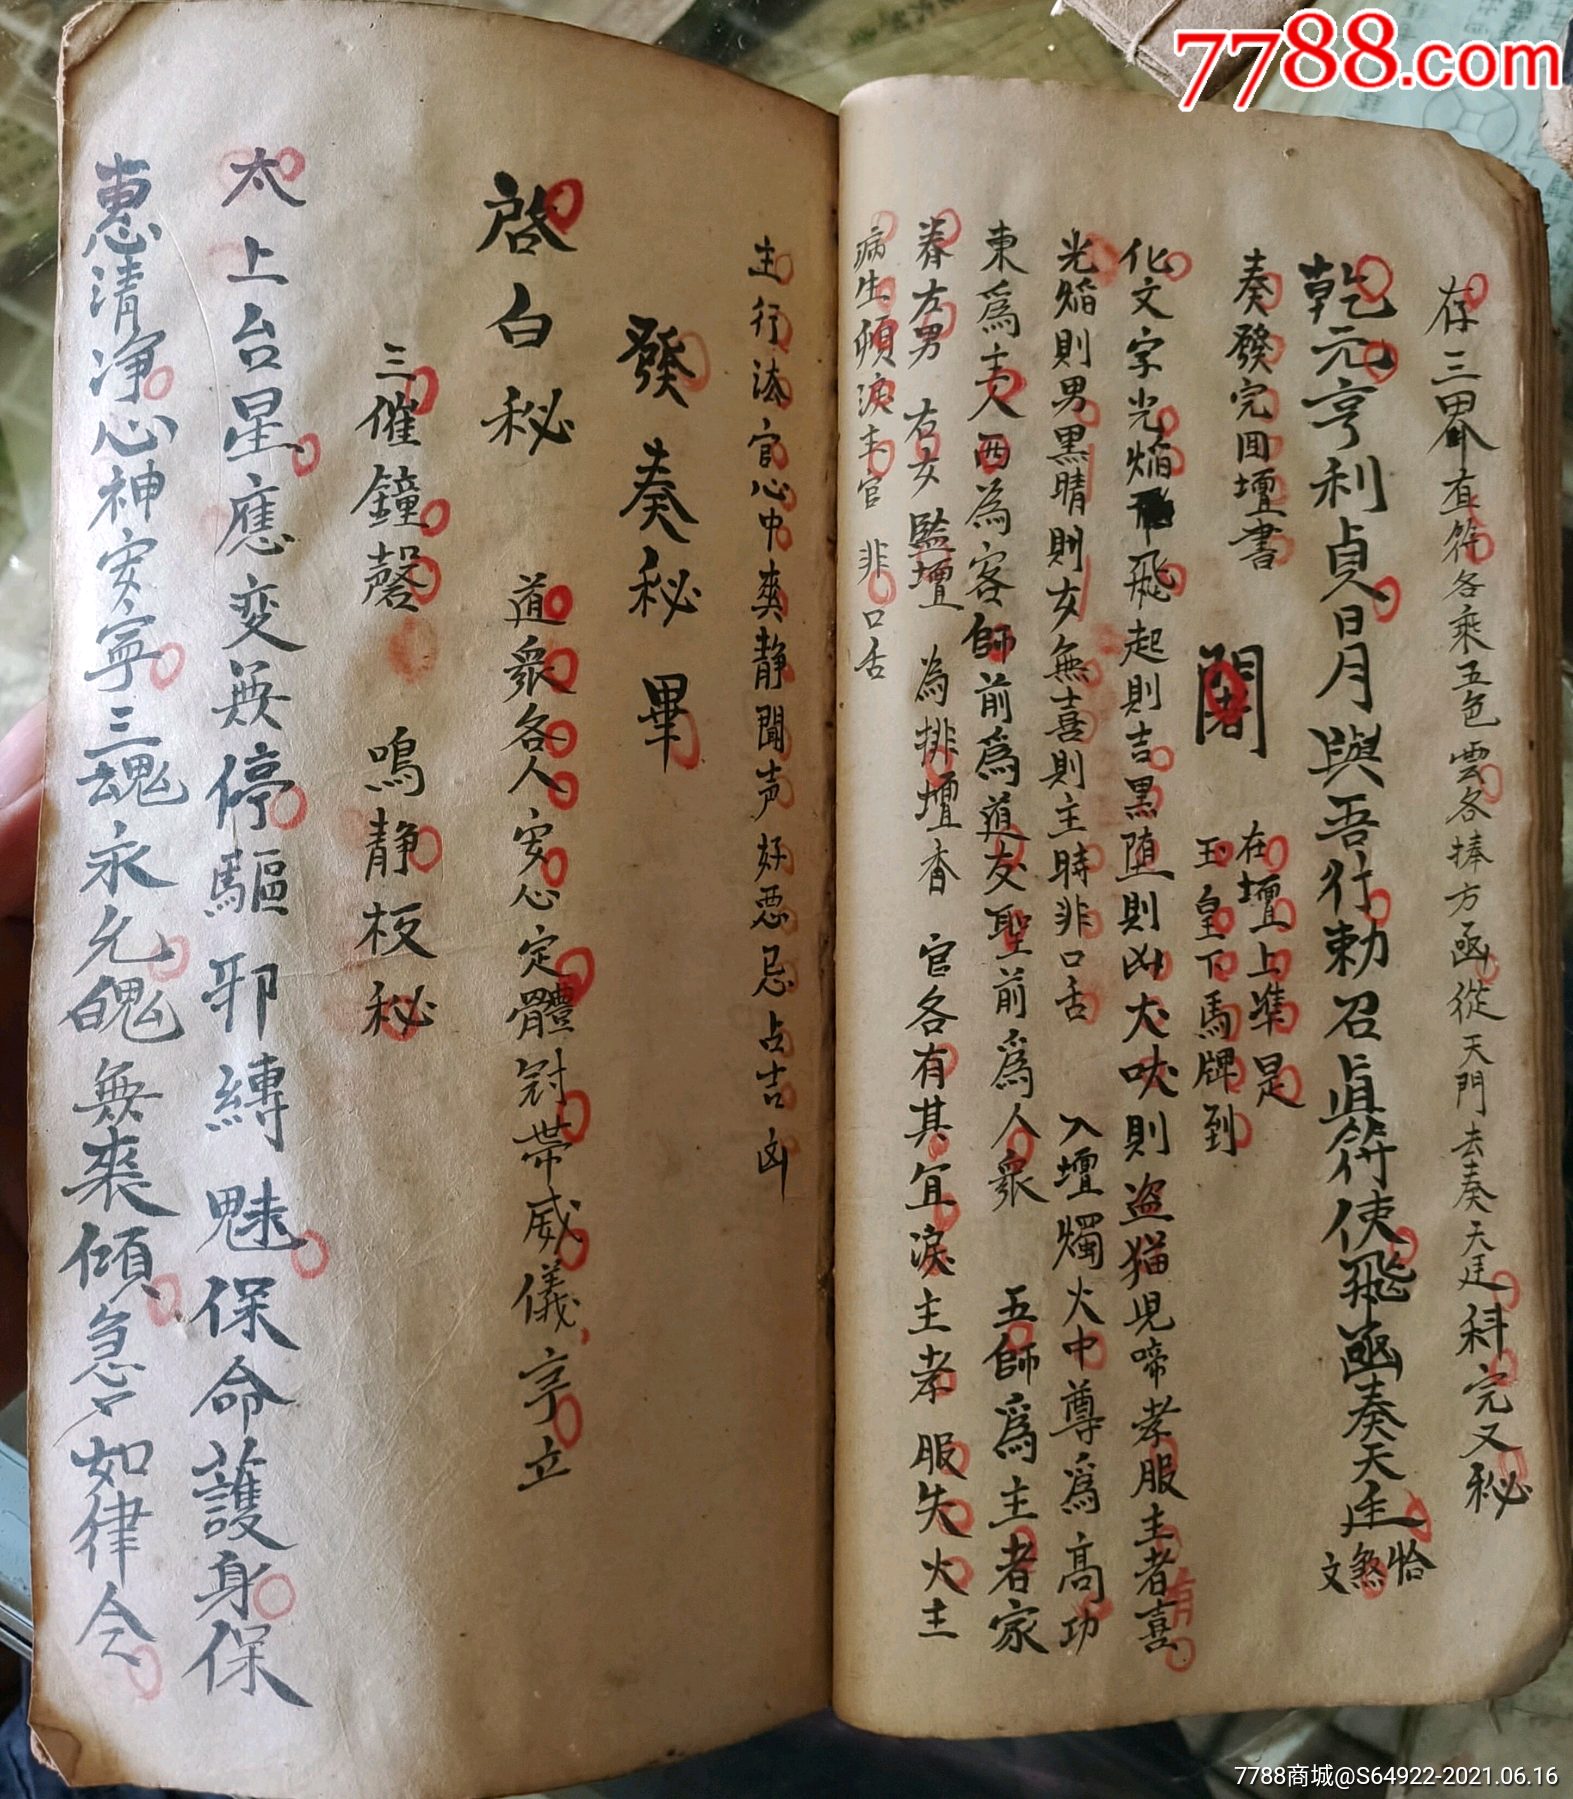 7788.com
存三界直符各乘五色雲各捧方函從天門去奏天廷科完又秘
乾元亨利貞日月與吾行勅召眞符使飛函奏天廷
恰煞文
奏發完囬壇書
在壇上準是
玉皇下馬牌到
化文字光焔飛起則吉黑堕則凶犬吠則盗猫児啼孝服主者喜
有
光焔則男黒晴則女無喜則主時非口舌 入壇燭火中尊爲高功
東爲主人西為客師前爲道友聖前爲人衆 五師爲主者家
眷左男 右女 監壇 為排壇香 官各有其宜淚主孝 服失火主
病生傾淚主官 非口舌
主行法官心中爽静聞声好惡忌占吉凶
發奏秘畢
啓白秘 道衆各人安心定體冠帯威儀亭立
三催鐘磬 鳴静板秘
太上台星應変無停驅邪縛魅保命護身保
惠清净心神安寕三魂永允魄無喪傾急々如律令
7788商城@S64922-2021.06.16